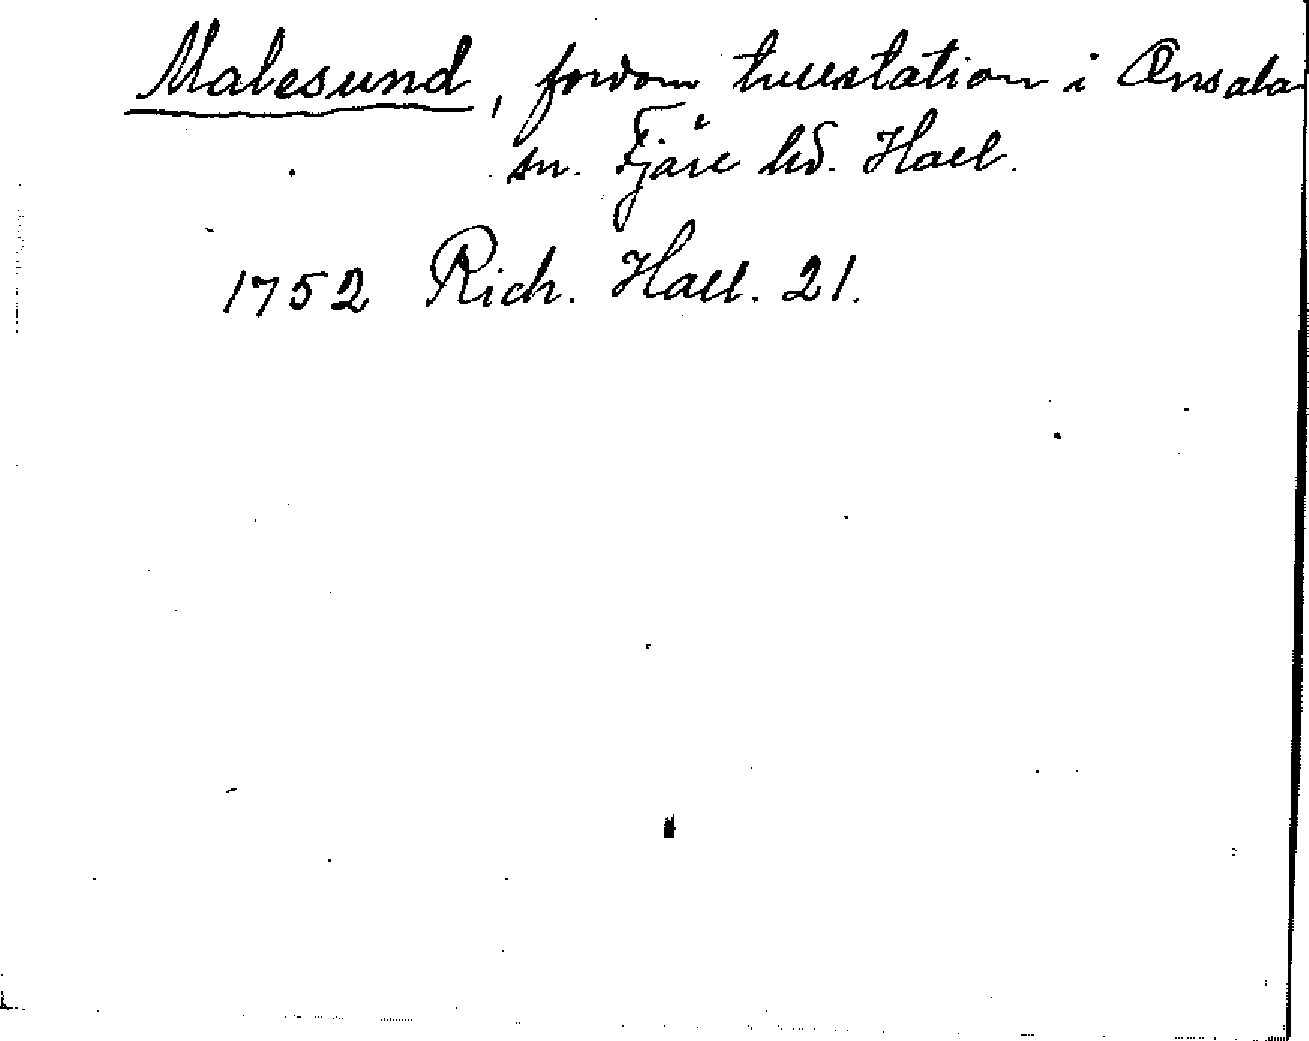 Malesund, fordom tullstation i Onsala
sn. Fjäre hd. Hall.
1752 Rich. Hall. 21.